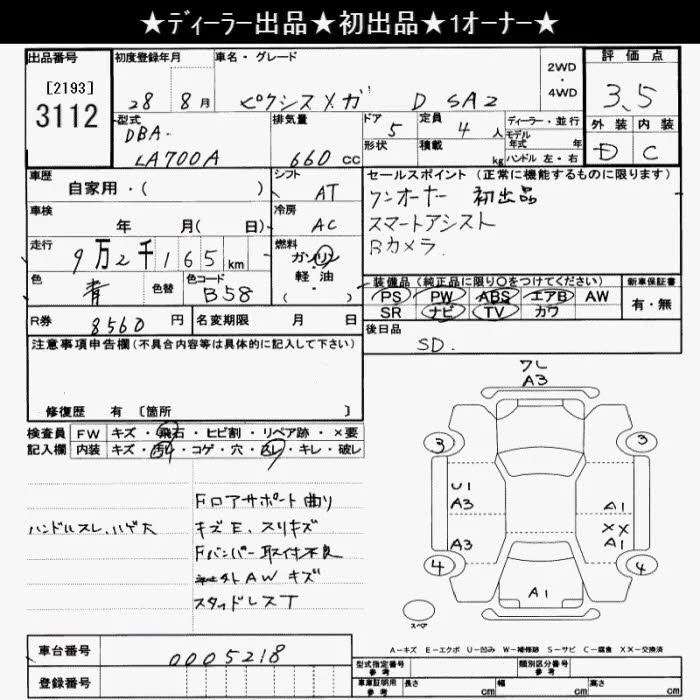 ★ディーラー出品★初出品★1オーナー★
出品番号
[2193]
3112
初度登録年月
28 8月
車名・グレード
ピクシスメガ D SA2
2WD
・
4WD
評価点
3.5
外装 内装
D C
型式
DBA-
LA700A
排気量
660 cc
ドア
5
定員
4 人
形状
積載
kg
ディーラー・並行
モデル年式 年
ハンドル 左・右
車歴
自家用・( )
シフト
AT
車検
年 月( 日)
冷房
AC
走行
9万2千165km
燃料
ガソリン
軽油
( )
色
青
色替
色コード
B58
R券
8560 円
名変期限 月 日
セールスポイント(正常に機能するものに限ります)
ワンオーナー 初出品
スマートアシスト
Bカメラ
装備品(純正品に限り○をつけてください)
PS PW ABS エアB AW
SR ナビ TV カワ
新車保証書
有・無
後日品
SD.
注意事項申告欄(不具合内容等は具体的に記入して下さい)
修復歴 有 [箇所 ]
検査員
記入欄
FW キズ・飛石・ヒビ割・リペア跡・×要
内装 キズ・汚れ・コゲ・穴・スレ・キレ・破レ
ハンドルスレ、ハゲ大
Fロアサポート曲り
キズE、スリキズ
Fバンパー取付不良
社外AW キズ
スタッドレスT
ワレ
A3
3
3
U1
A3
A1
XX
A1
A3
4
4
A1
スペア
A-キズ E-エクボ U-凹み W-補修跡 S-サビ C-腐食 XX-交換済
車台番号
0005218
登録番号
型式指定番号
参考
類別区分番号
参考
車庫証明用
参考
長さ cm
幅 cm
高さ cm